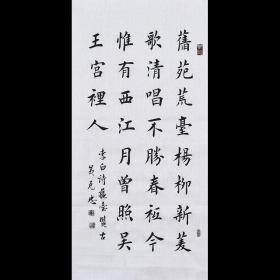 舊苑荒臺楊柳新菱
歌清唱不勝春祗今
惟有西江月曾照吳
王宮裡人
李白詩蘇臺覽古